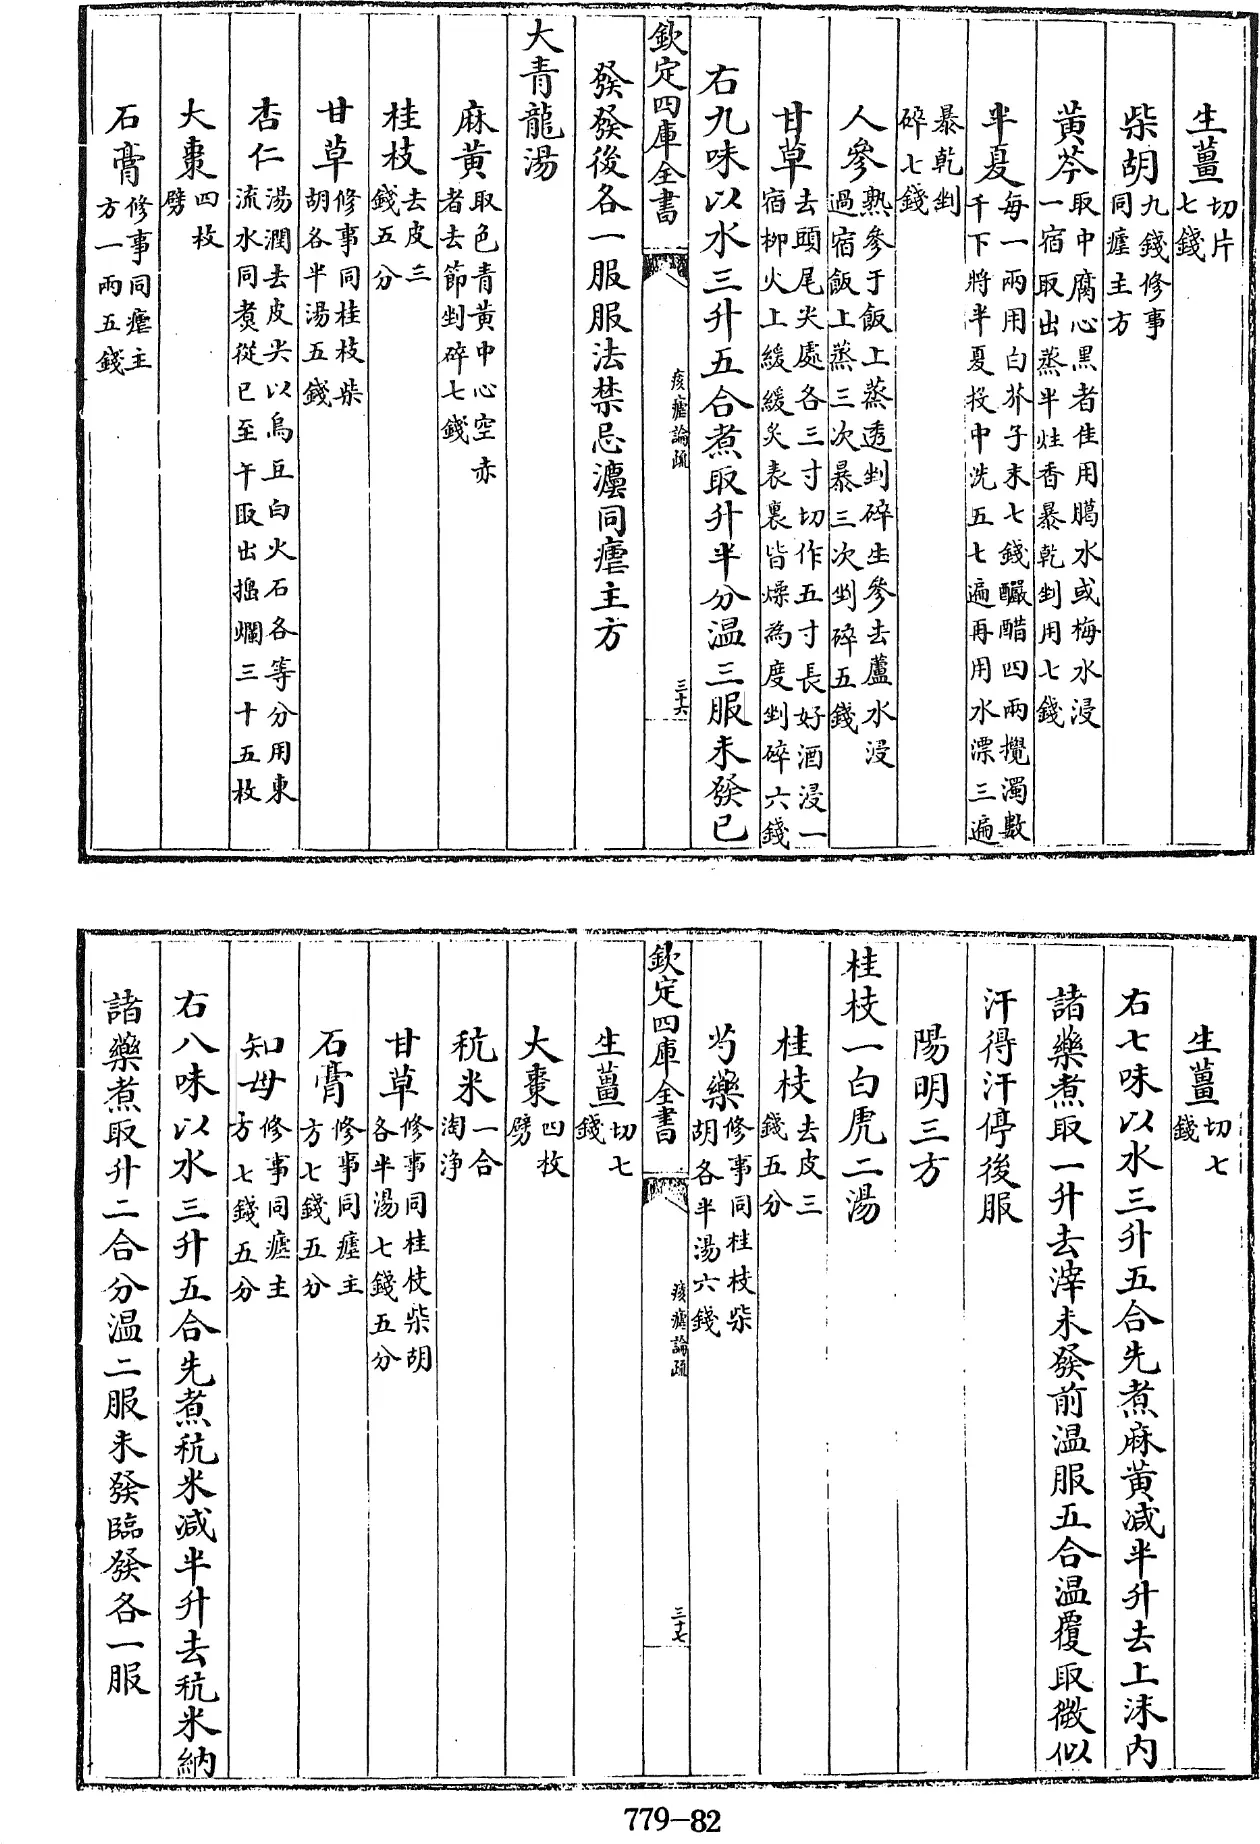 生薑切片七錢
柴胡九錢修事同瘧主方
黄芩取中腐心黑者佳用臈水或梅水浸一宿取出蒸半炷香暴乾剉用七錢
半夏每一兩用白芥子末七錢釅醋四兩攪濁數千下將半夏投中洗五七遍再用水漂三遍
暴乾剉碎七錢
人參熟參于飯上蒸透剉碎生參去蘆水浸過宿飯上蒸三次暴三次剉碎五錢
甘草去頭尾尖處各三寸切作五寸長好酒浸一宿柳火上緩緩炙表裏皆燥為度剉碎六錢
右九味以水三升五合煮取升半分温三服未發已
欽定四庫全書
痎瘧論疏
三十六
發發後各一服服法禁忌灋同瘧主方
大青龍湯
麻黄取色青黄中心空赤者去節剉碎七錢
桂枝去皮三錢五分
甘草修事同桂枝柴胡各半湯五錢
杏仁湯潤去皮尖以烏豆白火石各等分用東流水同煑從已至午取出搗爛三十五枚
大棗四枚劈
石膏修事同瘧主方一兩五錢
生薑切七錢
右七味以水三升五合先煮麻黄減半升去上沫内
諸藥煮取一升去滓未發前温服五合温覆取微似
汗得汗停後服
陽明三方
桂枝一白虎二湯
桂枝去皮三錢五分
芍藥修事同桂枝柴胡各半湯六錢
欽定四庫全書
痎瘧論疏
三十七
生薑切七錢
大棗四枚劈
秔米一合淘浄
甘草修事同桂枝柴胡各半湯七錢五分
石膏修事同瘧主方七錢五分
知母修事同瘧主方七錢五分
右八味以水三升五合先煮秔米减半升去秔米納
諸藥煮取升二合分温二服未發臨發各一服
779-82